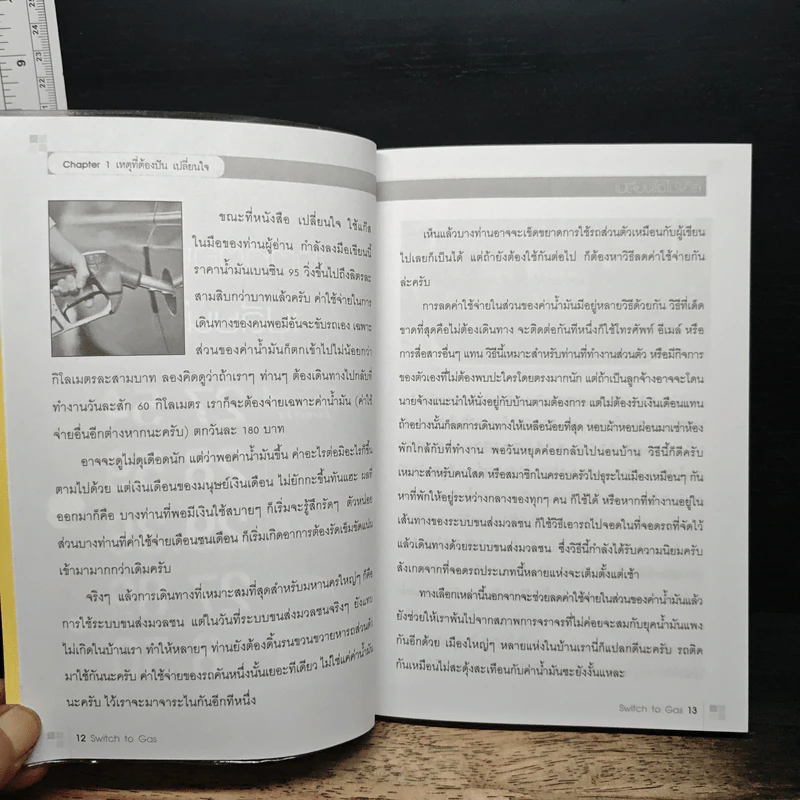 9
Chapter 1 เหตุที่ต้องปัน เปลี่ยนใจ
ขณะที่หนังสือ เปลี่ยนใจ ใช้แก๊ส
ในมือของท่านผู้อ่าน กำลังลงมือเขียนนี้
ราคาน้ำมันเบนซิน 95 วิ่งขึ้นไปถึงลิตรละ
สามสิบกว่าบาทแล้วครับ ค่าใช้จ่ายในการ
เดินทางของคนพอมีอันจะขับรถเอง เฉพาะ
ส่วนของค่าน้ำมันก็ตกเข้าไปไม่น้อยกว่า
กิโลเมตรละสามบาท ลองคิดดูว่าถ้าเราๆ ท่านๆ ต้องเดินทางไปกลับที่
ทำงานวันละสัก 60 กิโลเมตร เราก็จะต้องจ่ายเฉพาะค่าน้ำมัน (ค่าใช้
จ่ายอื่นอีกต่างหากนะครับ) ตกวันละ 180 บาท
อาจจะดูไม่ดุเดือดนัก แต่ว่าพอค่าน้ำมันขึ้น ค่าอะไรต่อมิอะไรก็ขึ้น
ตามไปด้วย แต่เงินเดือนของมนุษย์เงินเดือน ไม่ยักกะขึ้นทันแฮะ ผลที่
ออกมาก็คือ บางท่านที่พอมีเงินใช้สบายๆ ก็เริ่มจะรู้สึกรัดๆ ตัวหน่อย
ส่วนบางท่านที่ค่าใช้จ่ายเดือนชนเดือน ก็เริ่มเกิดอาการต้องรัดเข็มขัดแน่น
เข้ามามากกว่าเดิมครับ
จริงๆ แล้วการเดินทางที่เหมาะสมที่สุดสำหรับมหานครใหญ่ๆ ก็คือ
การใช้ระบบขนส่งมวลชน แต่ในวันที่ระบบขนส่งมวลชนจริงๆ ยังแทบ
ไม่เกิดในบ้านเรา ทำให้หลายๆ ท่านยังต้องดิ้นรนขวนขวายหารถส่วนตัว
มาใช้กันนะครับ ค่าใช้จ่ายของรถคันหนึ่งนั้นเยอะทีเดียว ไม่ใช่แค่ค่าน้ำมัน
นะครับ ไว้เราจะมาจาระไนกันอีกทีหนึ่ง
12 Switch to Gas
เห็นแล้วบางท่านอาจจะเข็ดขยาดการใช้รถส่วนตัวเหมือนกับผู้เขียน
ไปเลยก็เป็นได้ แต่ถ้ายังต้องใช้กันต่อไป ก็ต้องหาวิธีลดค่าใช้จ่ายกัน
ล่ะครับ
การลดค่าใช้จ่ายในส่วนของค่าน้ำมันมีอยู่หลายวิธีด้วยกัน วิธีที่เด็ด
ขาดที่สุดคือไม่ต้องเดินทาง จะติดต่อกันทีหนึ่งก็ใช้โทรศัพท์ อีเมล์ หรือ
การสื่อสารอื่นๆ แทน วิธีนี้เหมาะสำหรับท่านที่ทำงานส่วนตัว หรือมีกิจการ
ของตัวเองที่ไม่ต้องพบปะใครโดยตรงมากนัก แต่ถ้าเป็นลูกจ้างอาจจะโดน
นายจ้างแนะนำให้นั่งอยู่กับบ้านตามต้องการ แต่ไม่ต้องรับเงินเดือนแทน
ถ้าอย่างนั้นก็ลดการเดินทางให้เหลือน้อยที่สุด หอบผ้าหอบผ่อนมาเช่าห้อง
พักใกล้กับที่ทำงาน พอวันหยุดค่อยกลับไปนอนบ้าน วิธีนี้ก็ดีครับ
เหมาะสำหรับคนโสด หรือสมาชิกในครอบครัวไปธุระในเมืองเหมือนๆ กัน
หาที่พักให้อยู่ระหว่างกลางของทุกๆ คน ก็ใช้ได้ หรือหากที่ทำงานอยู่ใน
เส้นทางของระบบขนส่งมวลชน ก็ใช้วิธีเอารถไปจอดในที่จอดรถที่จัดไว้
แล้วเดินทางด้วยระบบขนส่งมวลชน ซึ่งวิธีนี้กำลังได้รับความนิยมครับ
สังเกตจากที่จอดรถประเภทนี้หลายแห่งจะเต็มตั้งแต่เช้า
ทางเลือกเหล่านี้นอกจากจะช่วยลดค่าใช้จ่ายในส่วนของค่าน้ำมันแล้ว
ยังช่วยให้เราพ้นไปจากสภาพการจราจรที่ไม่ค่อยจะสมกับยุคน้ำมันแพง
กันอีกด้วย เมืองใหญ่ๆ หลายแห่งในบ้านเรานี่ก็แปลกดีนะครับ รถติด
กันเหมือนไม่สะดุ้งสะเทือนกับค่าน้ำมันซะยังงั้นแหละ
Switch to Gas 13